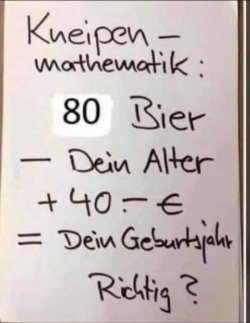 Kneipen –
mathematik:
80 Bier
– Dein Alter
+ 40.– €
= Dein Geburtsjahr
Richtig?